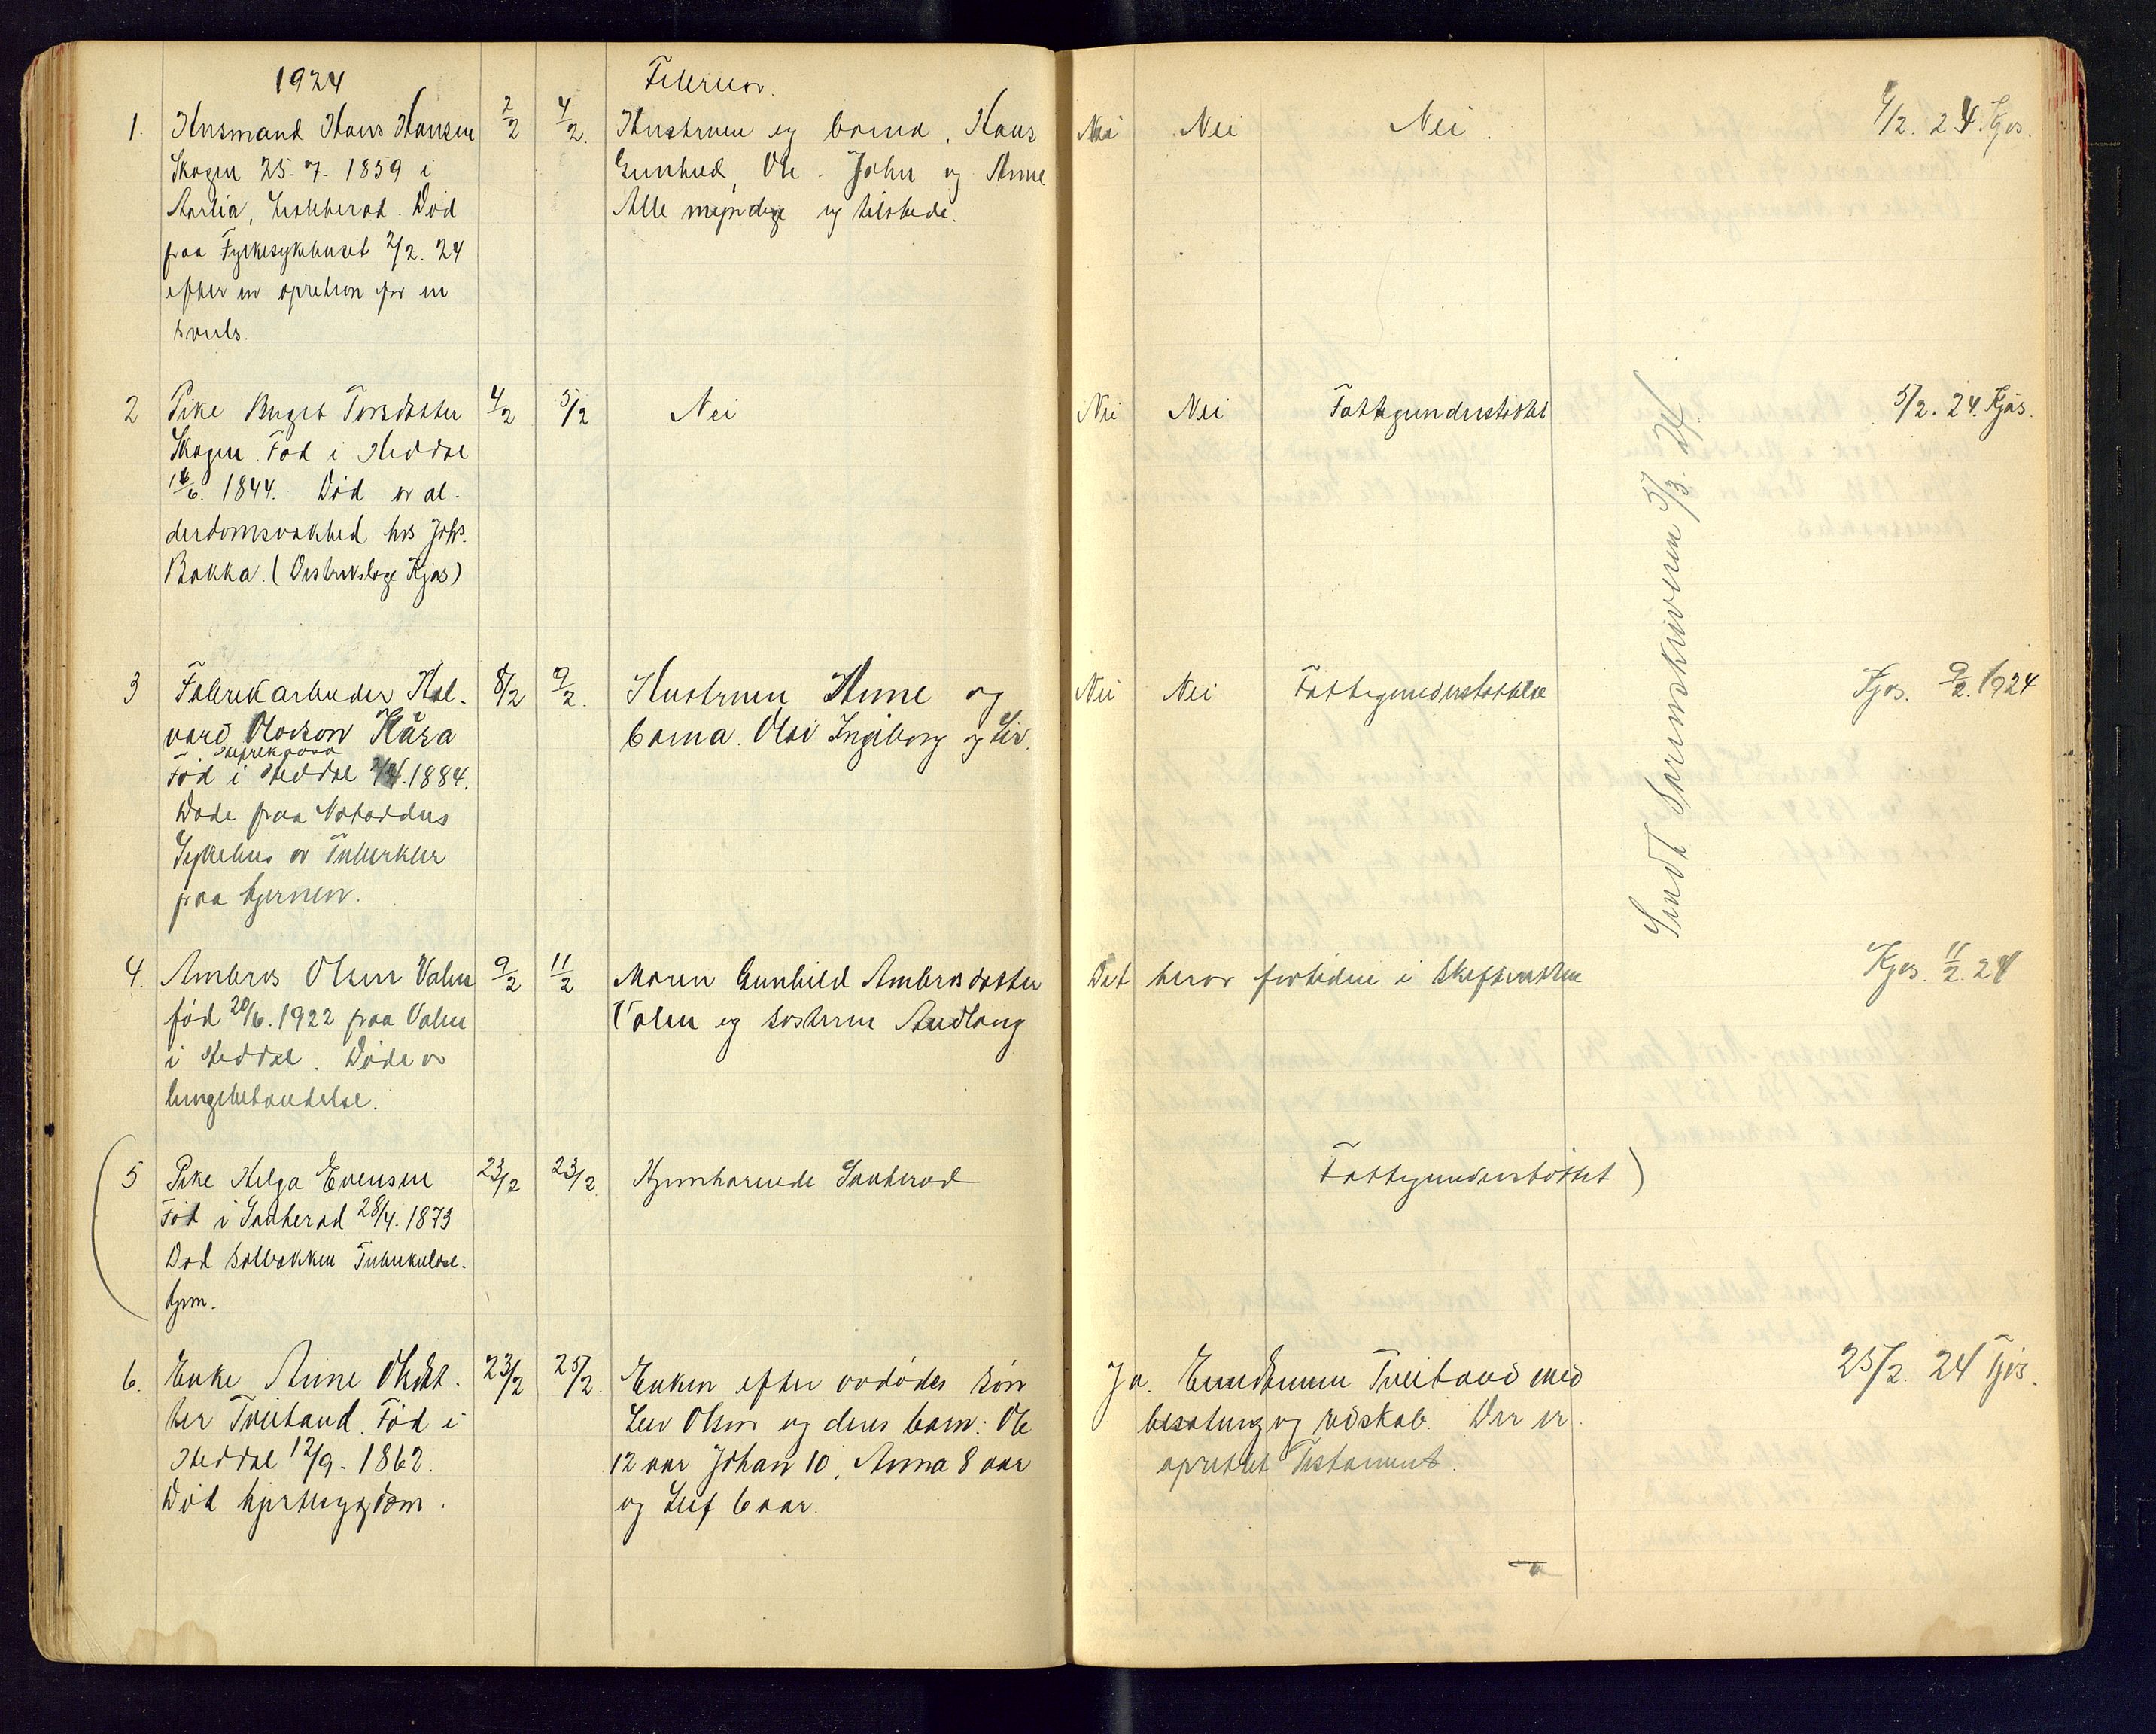 1924 Februar.
1. Husmand Hans Hansen 2/2 4/2. Hustruen og barna. Hans Nei Nei Nei. 4/2. 24. Kjos.
Skogen 25-7-1859 i Gunhild, Ole. John og Anne
Aarlia, Lisleherad. Død Alle myndige og tilstede.
paa Fylkesykehuset 2/2. 24
efter en opretion for en
svuls.
2 Pike Birgit Torsdatter 4/2 5/2 Nei Nei Nei Fattigunderstøttet 5/2. 24. Kjøs.
Skogen. Fød i Heddal
/6. 1844. Død av al-
derdomsvakhed hos Johs.
Bakka. (Distrikslæge Kjøs)
Sendt Sorenskriveren 5/3. 24.
3 Fabrikarbeider Hal- 8/2 9/2. Hustruen Anne og Nei Nei Fattigunderstøttelse Kjos. 9/2. 1924
vard Olavson Håra barna. Olav Ingeborg og Liv.
Fød i Heddal 1884.
Døde paa Notoddens
Sykehus av Tuberkler
paa hjernen.
4. Ambros Olsen Valen 9/2 11/2 Moren Gunhild Ambrosdatter Det beror fortiden i Skifteretten Kjos. 11/2. 24
fød 20/6. 1922 paa Valen Valen og søsteren Audlaug
i Heddal. Døde av
lungebetændelse.
(5 Pike Helga Evensen 23/2 23/2. Hjemhørende Sauherad Fattigunderstøttet)
Fød i Sauherad 28/4. 1873
Død Solbakken Tuberkulose-
hjem.
6. Enke Anne Olsdat- 23/2 25/2. Enken efter avdødes søn Ja. Eiendommen Tveitand med 25/2. 24 Kjos.
ter Tveitand. Fød i Leiv Olsen og deres barn: Ole besætning og redskab. Der er
Heddal 12/9-1862. 12 aar Johan 10, Anna 8 aar oprettet Testament.
Død hjertesygdom. og Leif 6 aar.